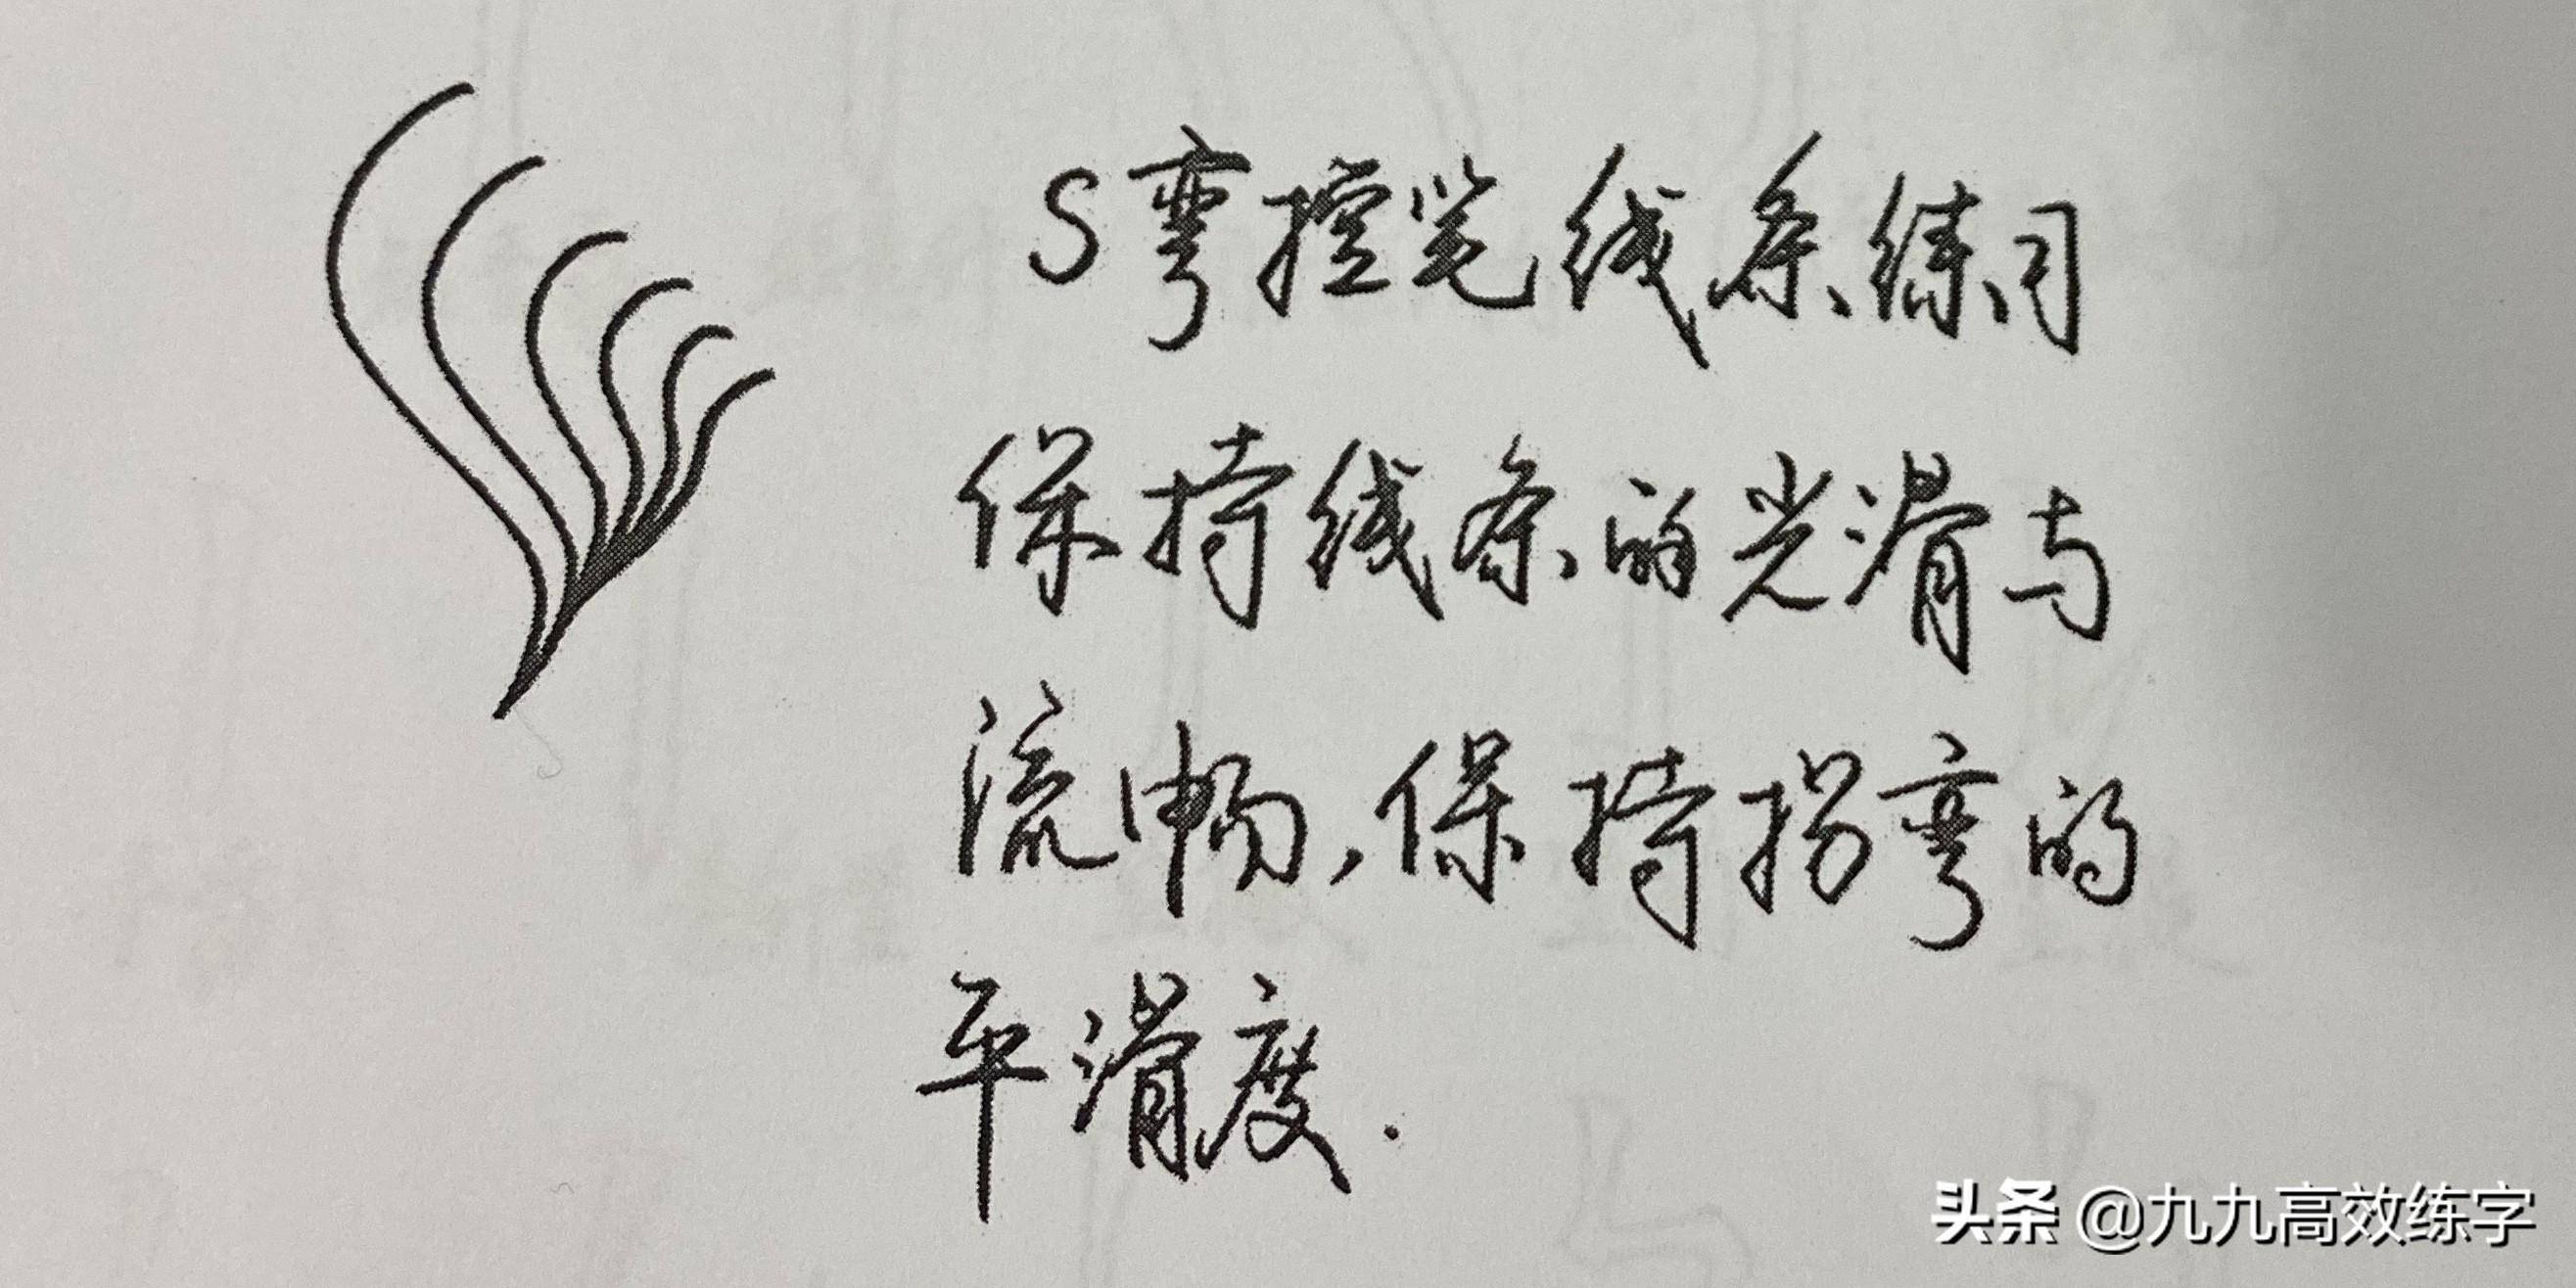 S弯控笔线条练习
保持线条的光滑与
流畅,保持拐弯的
平滑度.
头条 @九九高效练字